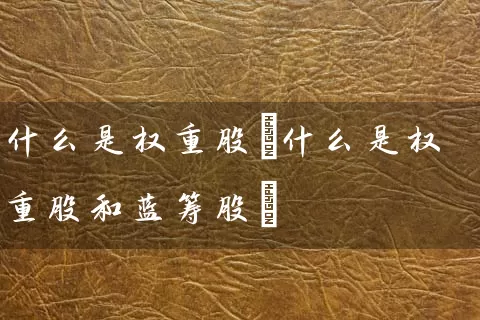 什么是权重股什么是权
重股和蓝筹股